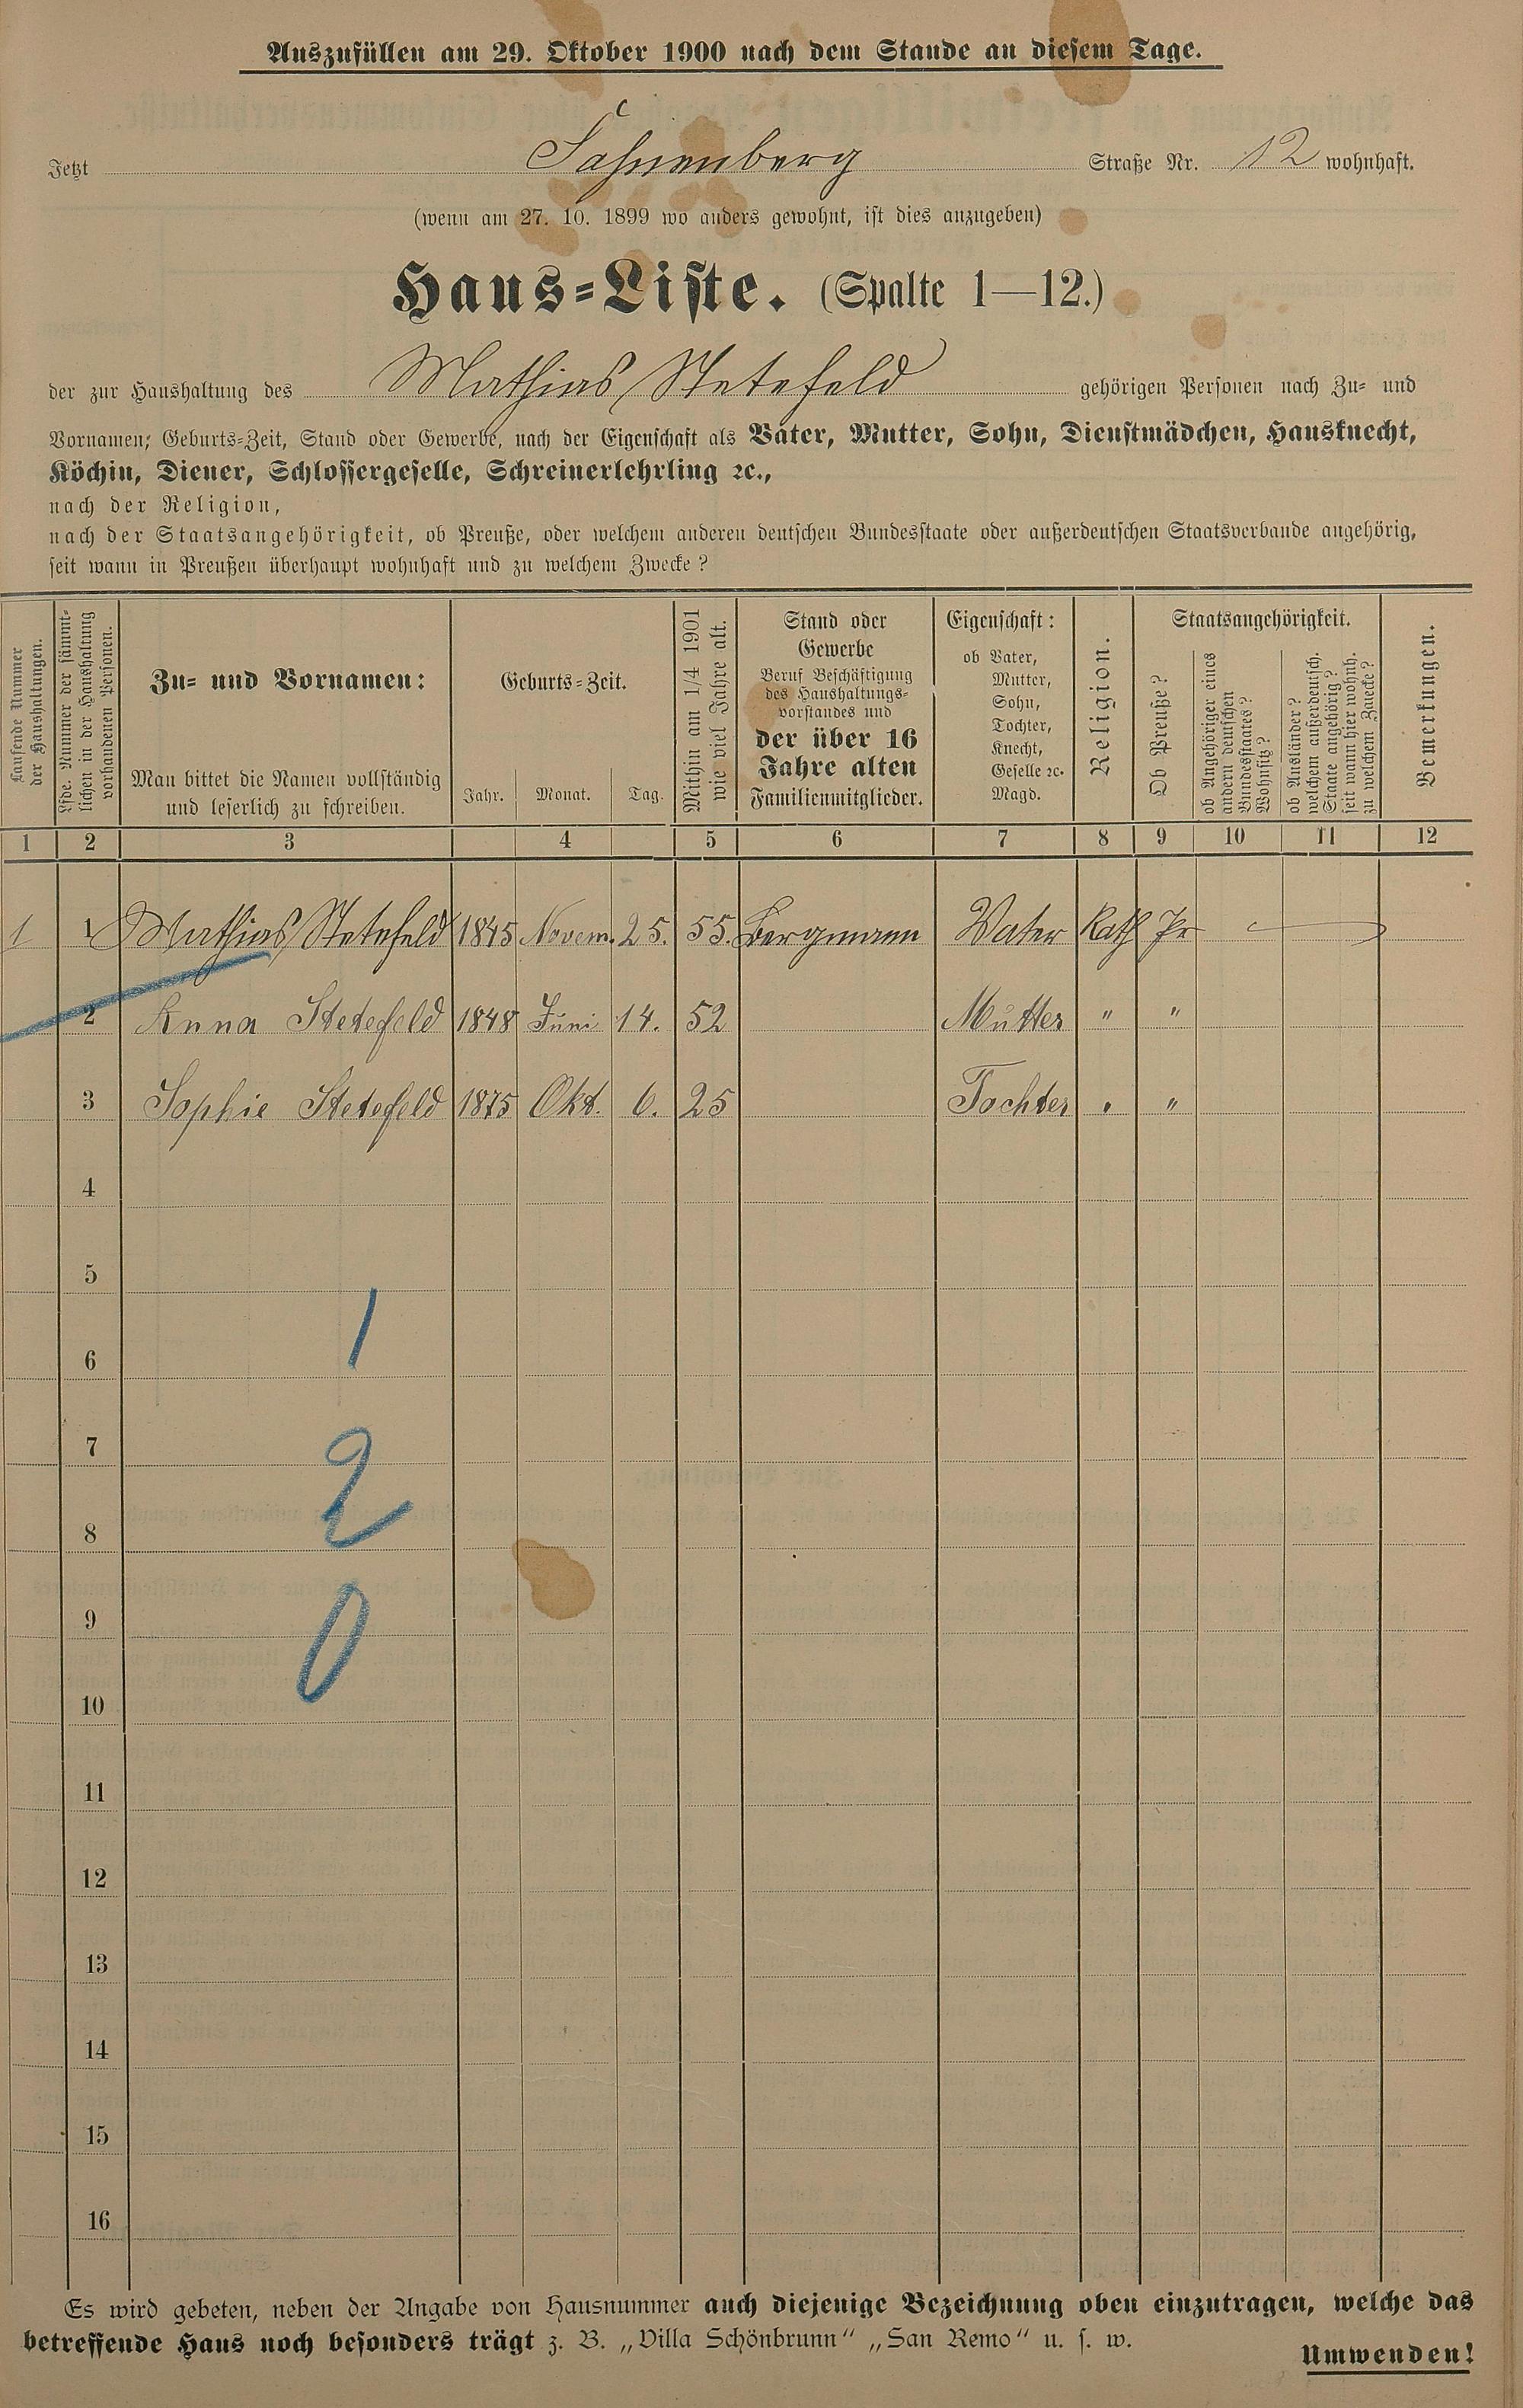 Auszufüllen am 29. Oktober 1900 nach dem Stande an diesem Tage.
Jetzt Fahnenberg Straße Nr. 12 wohnhaft.
(wenn am 27. 10. 1899 wo anders gewohnt, ist dies anzugeben)
Haus-Liste. (Spalte 1—12.)
der zur Haushaltung des Mathias Stetefeld gehörigen Personen nach Zu- und
Vornamen; Geburts-Zeit, Stand oder Gewerbe, nach der Eigenschaft als Vater, Mutter, Sohn, Dienstmädchen, Hausknecht,
Köchin, Diener, Schlossergeselle, Schreinerlehrling ꝛc.,
nach der Religion,
nach der Staatsangehörigkeit, ob Preuße, oder welchem anderen deutschen Bundesstaate oder außerdeutschen Staatsverbande angehörig,
seit wann in Preußen überhaupt wohnhaft und zu welchem Zwecke?
Laufende Nummer
der Haushaltungen.
Lfde. Nummer der sämmt-
lichen in der Haushaltung
vorhandenen Personen.
Zu- und Vornamen:
Man bittet die Namen vollständig
und leserlich zu schreiben.
Geburts-Zeit.
Jahr. Monat. Tag.
Mithin am 1/4 1901
wie viel Jahre alt.
Stand oder
Gewerbe
Beruf Beschäftigung
des Haushaltungs-
vorstandes und
der über 16
Jahre alten
Familienmitglieder.
Eigenschaft:
ob Vater,
Mutter,
Sohn,
Tochter,
Knecht,
Geselle ꝛc.
Magd.
Religion.
Staatsangehörigkeit.
Ob Preuße?
ob Angehöriger eines
andern deutschen
Bundesstaates?
Wohnsitz?
ob Ausländer?
welchem außerdeutsch.
Staate angehörig?
seit wann hier wohnh.
zu welchem Zwecke?
Bemerkungen.
1 2 3 4 5 6 7 8 9 10 11 12
1 1 Mathias Stetefeld 1845 Novem. 25. 55. Bergmann Vater Kath Pr
2 Anna Stetefeld 1848 Juni 14. 52 Mutter " "
3 Sophie Stetefeld 1875 Okt. 6. 25 Tochter " "
4
5
1
6
7
2
8
9
0
10
11
12
13
14
15
16
Es wird gebeten, neben der Angabe von Hausnummer auch diejenige Bezeichnung oben einzutragen, welche das
betreffende Haus noch besonders trägt z. B. „Villa Schönbrunn“ „San Remo“ u. s. w.
Umwenden!